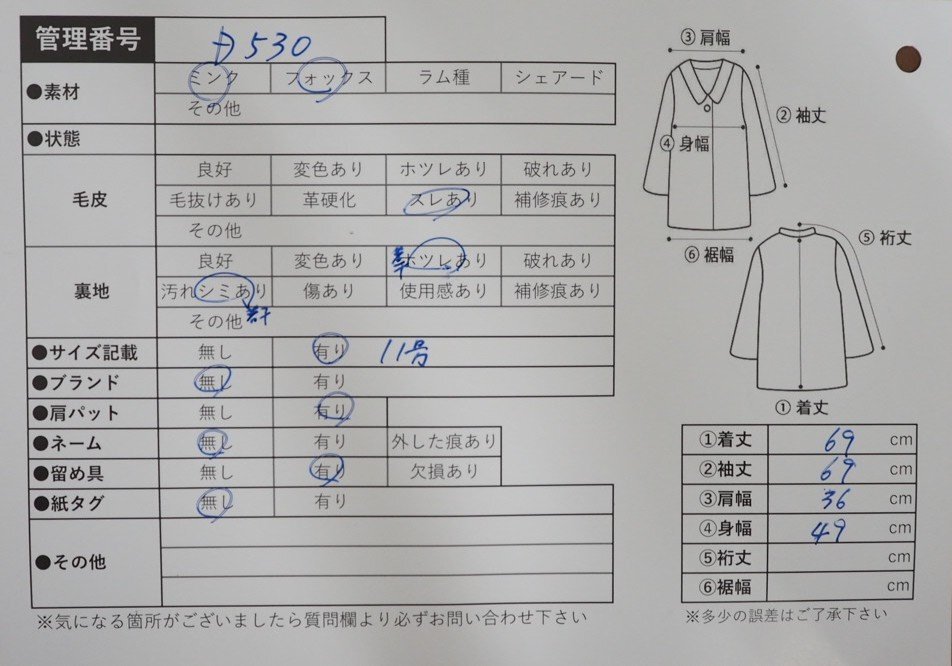 管理番号 D530
●素材 ミンク フォックス ラム種 シェアード
その他
●状態
毛皮 良好 変色あり ホツレあり 破れあり
毛抜けあり 革硬化 スレあり 補修痕あり
その他
裏地 良好 変色あり ホツレあり 破れあり
汚れシミあり 傷あり 使用感あり 補修痕あり
その他 若干
●サイズ記載 無し 有り 11号
●ブランド 無し 有り
●肩パット 無し 有り
●ネーム 無し 有り 外した痕あり
●留め具 無し 有り 欠損あり
●紙タグ 無し 有り
●その他
※気になる箇所がございましたら質問欄より必ずお問い合わせ下さい
③肩幅
②袖丈
④身幅
⑥裾幅
⑤裄丈
①着丈
①着丈 69 cm
②袖丈 69 cm
③肩幅 36 cm
④身幅 49 cm
⑤裄丈 cm
⑥裾幅 cm
※多少の誤差はご了承下さい